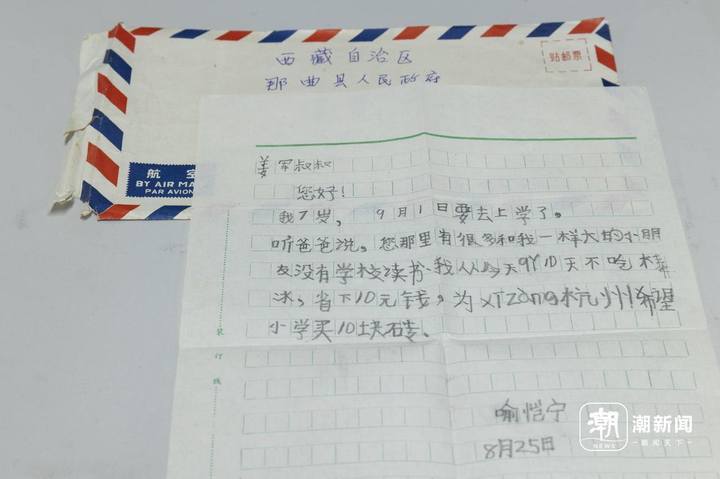 西藏自治区
那曲县人民政府
贴邮票
航空
BY AIR MA
PAR AVION
姜军叔叔
您好!
我7岁,9月1日要去上学了。
听爸爸说。您那里有很多和我一样大的小朋
友没有学校读书.我从今天 10天不吃棒
冰,省下10元钱,为xīzàng杭州希望
小学买10块砖、
喻恺宁
8月25日
装订线
潮
NEWS
潮新闻
新闻天下